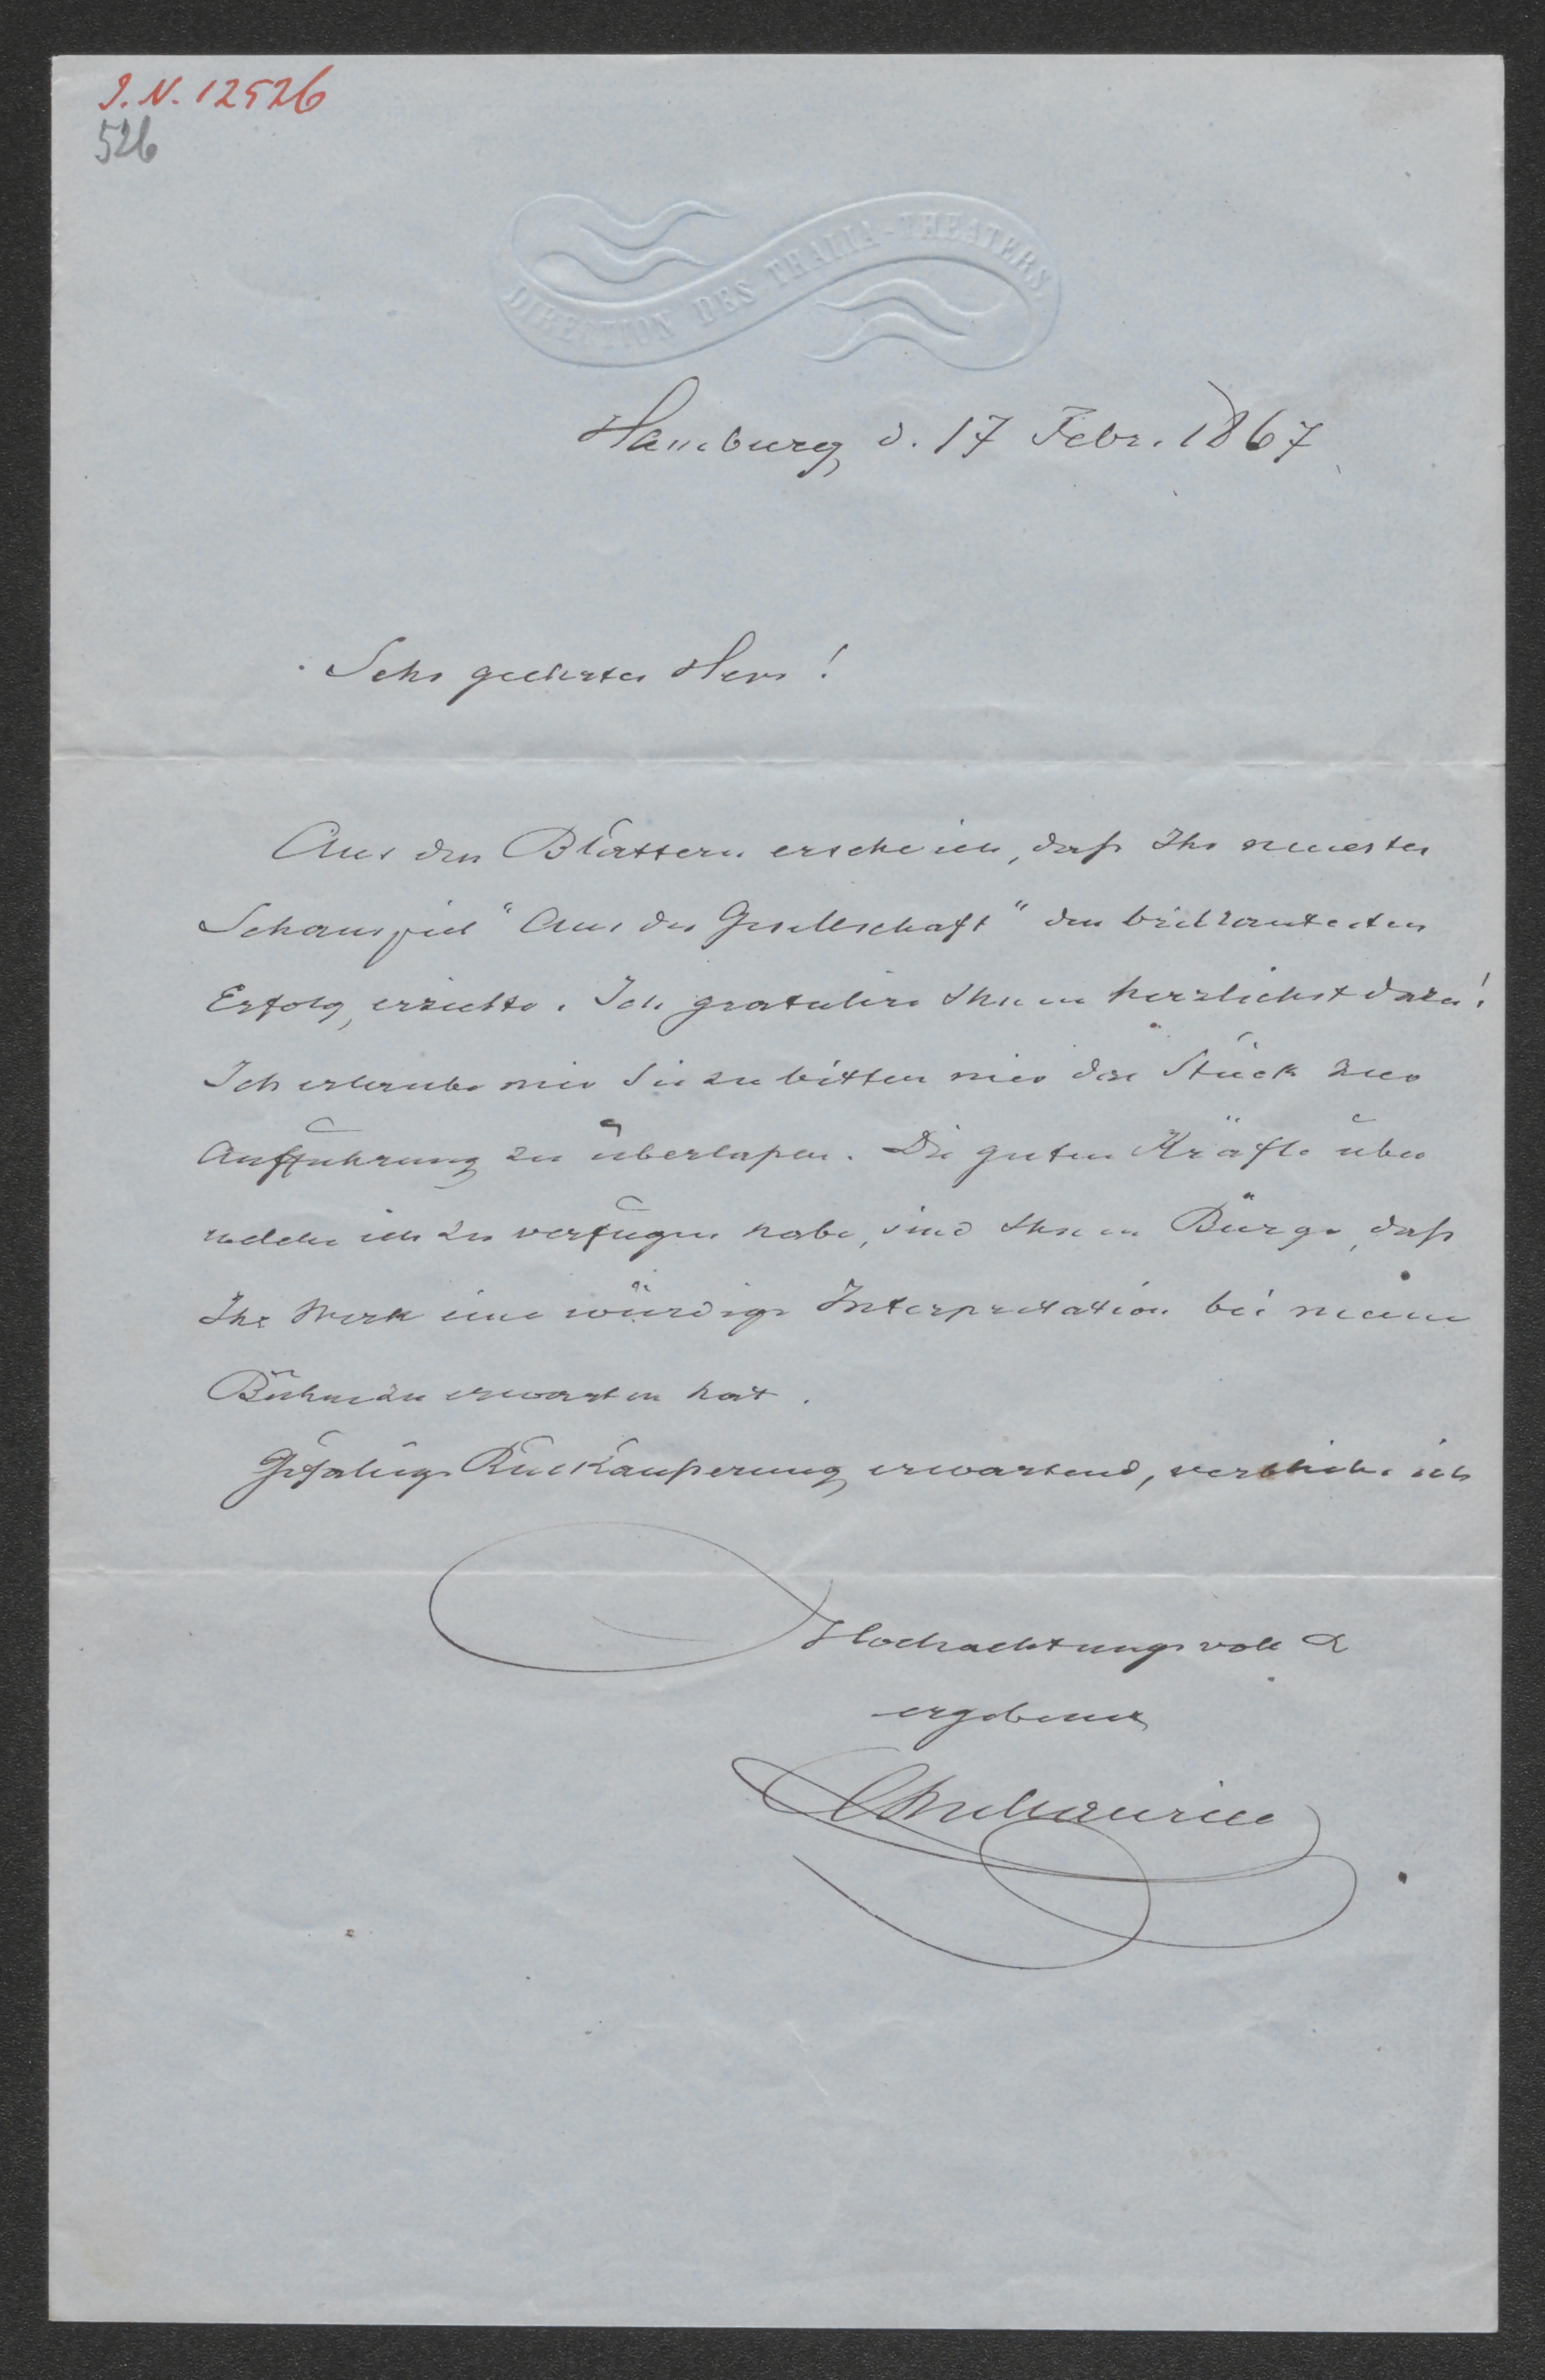 I. N. 12526
526
DIRECTION DES THALIA-THEATERS.
Hamburg d. 17 Febr. 1867
Sehr geehrter Herr!
Aus den Blättern ersehe ich, daß Ihr neuestes
Schauspiel "Aus der Gesellschaft" den brillantesten
Erfolg erzielte. Ich gratulire Ihnen herzlichst dazu!
Ich erlaube mir Sie zu bitten mir das Stück zur
Aufführung zu überlaßen. Die guten Kräfte über
welche ich zu verfügen habe, sind Ihnen Bürge, daß
Ihr Werk eine würdige Interpretation bei meiner
Bühne zu erwarten hat.
Gefällige Rückäußerung erwartend, verbleibe ich
Hochachtungsvoll &
ergebenst
Maurice